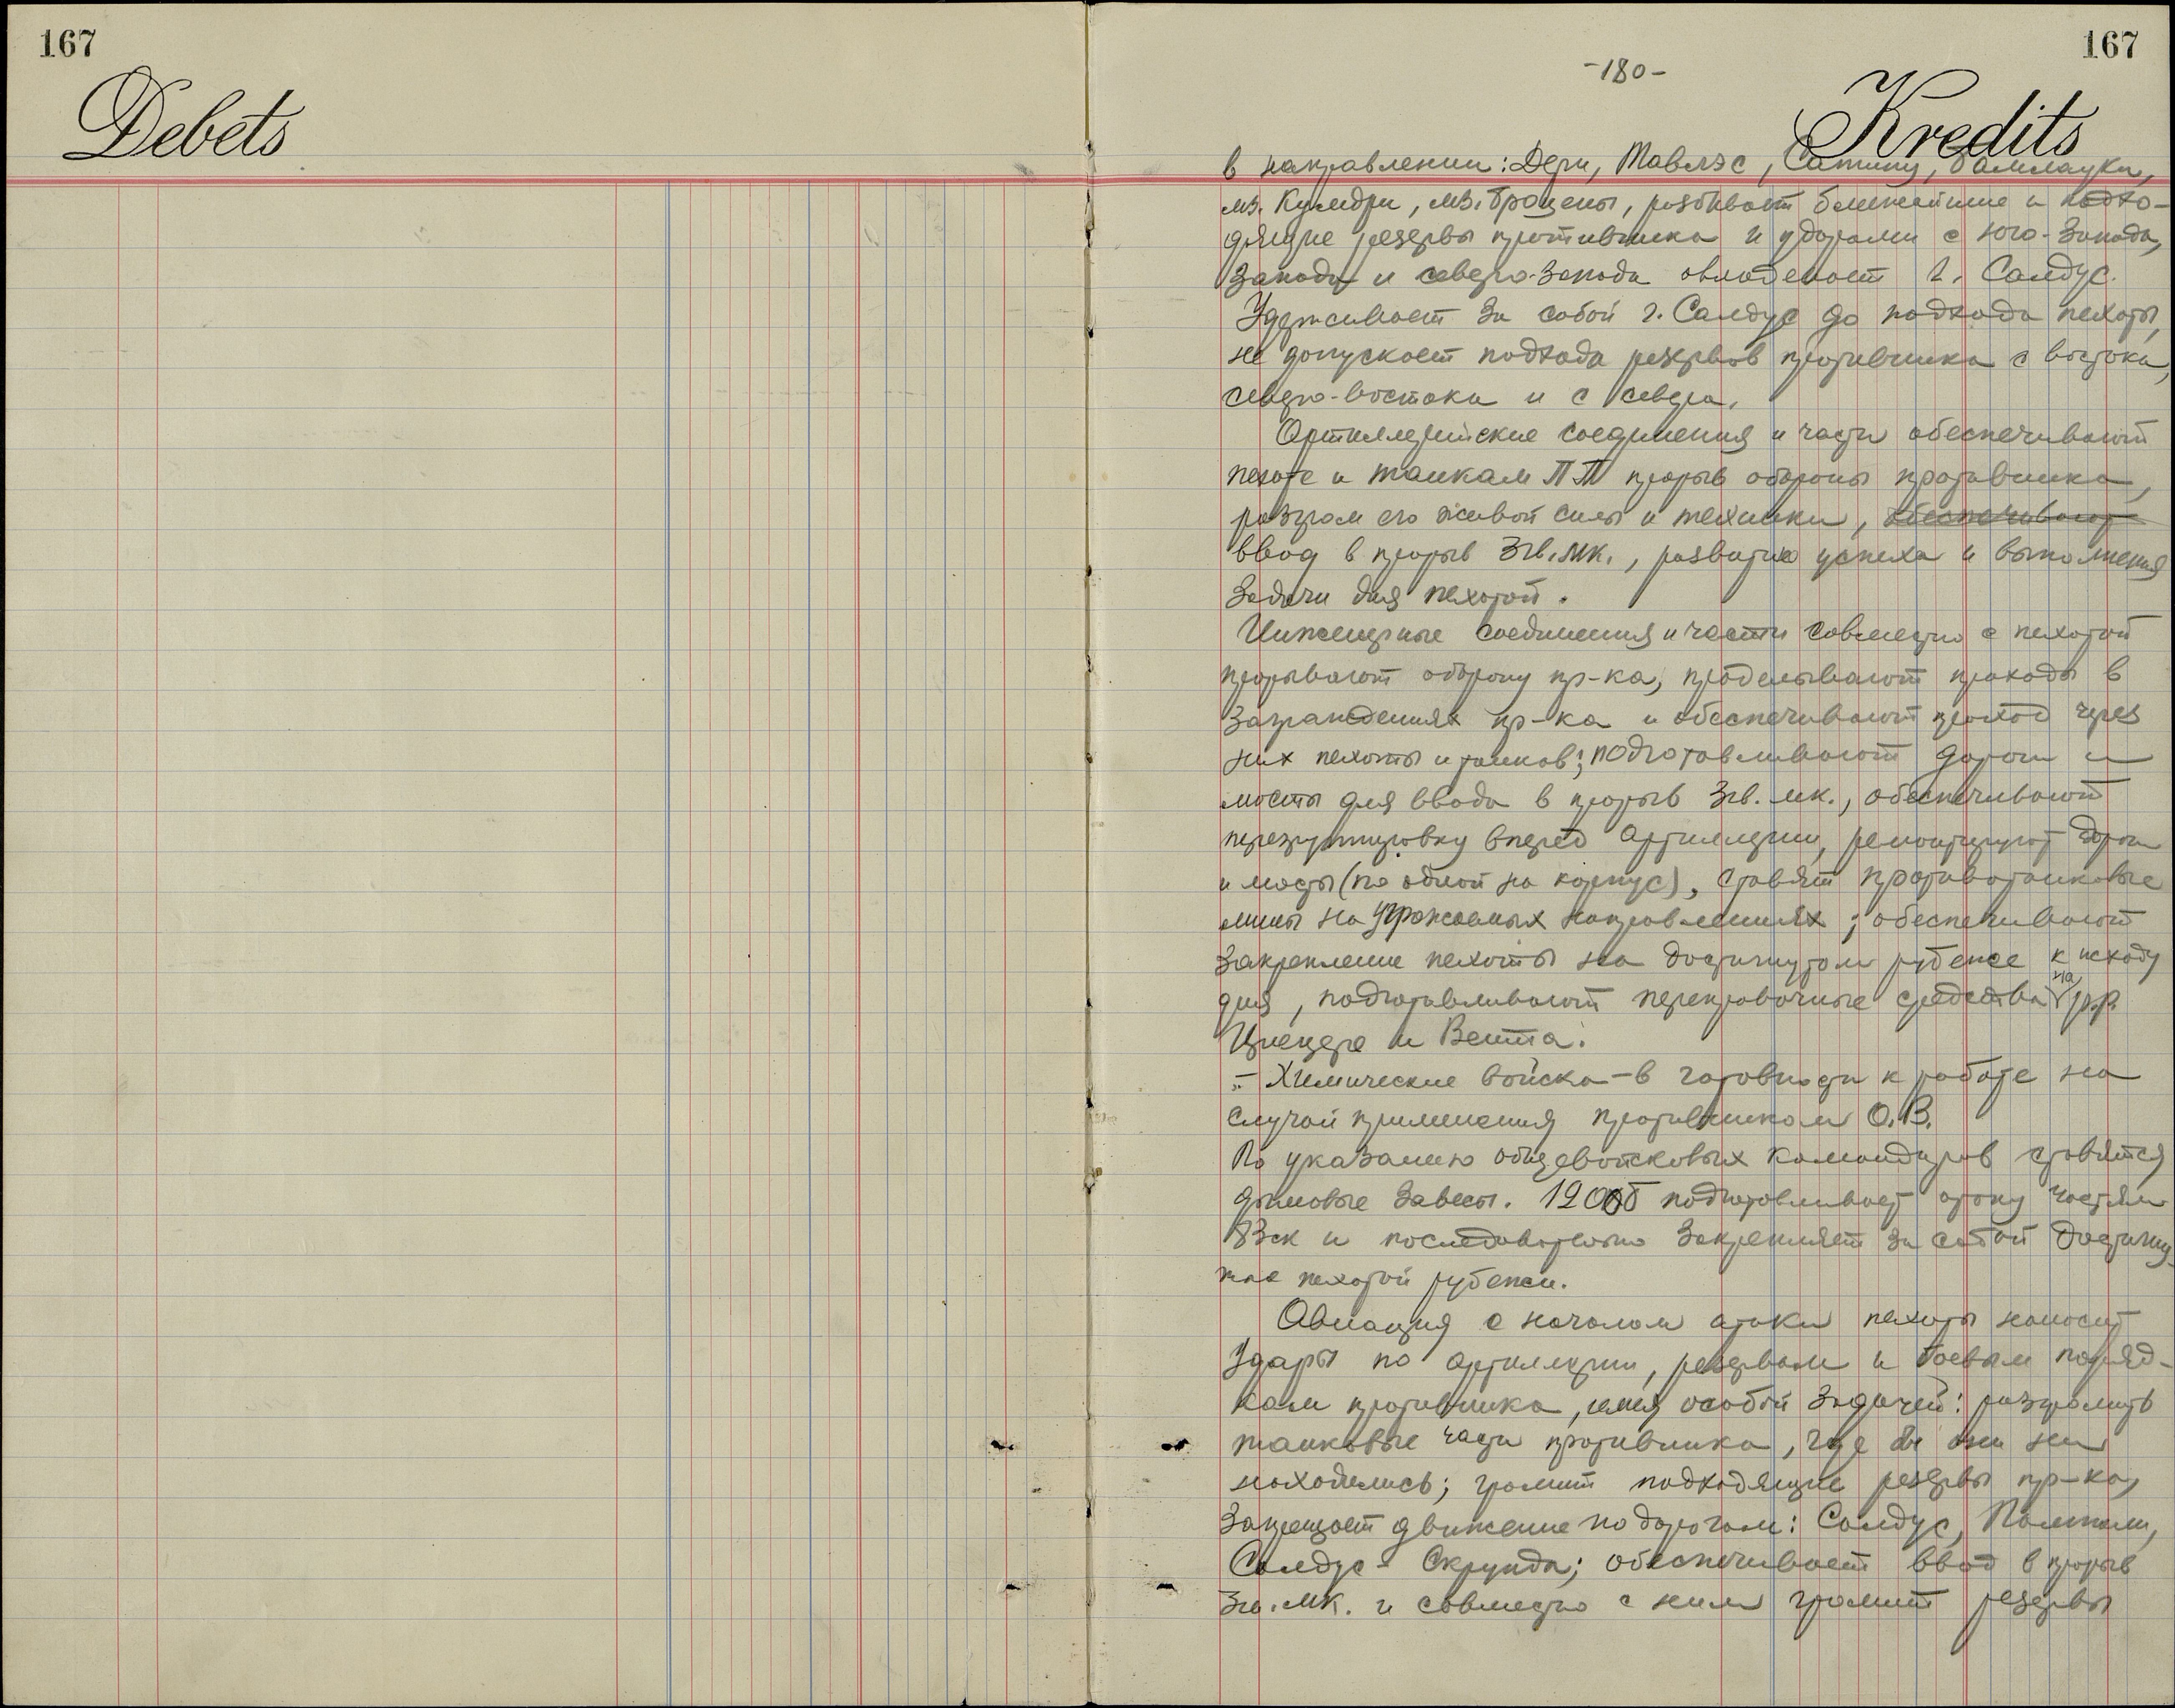 167
167
Debets
-180-
Kredits
в направлении: Дери, Мавлэс, Сатину, Бамлауки,
мз. Кумдри, мз. Броцены, разбивает ближайшие и подхо-
дящие резервы противника и ударами с юго-запада,
запада и северо-запада овладевает г. Салдус.
Удерживает за собой г. Салдус до подхода пехоты,
не допускает подхода резервов противника с востока,
северо-востока и с севера.
Артиллерийские соединения и части обеспечивают
пехоте и танкам ПП прорыв обороны противника,
разгром его живой силы и техники, обеспечивают
ввод в прорыв 3гв.мк., развитие успеха и выполнения
задачи дня пехотой.
Инженерные соединения и части совместно с пехотой
прорывают оборону пр-ка, проделывают проходы в
заграждениях пр-ка и обеспечивают проход через
них пехоты и танков; подготавливают дороги и
мосты для ввода в прорыв 3гв. мк., обеспечивают
перегруппировку вперед артиллерии, ремонтируют дороги
и мосты (по одной на корпус), ставят противотанковые
мины на угрожаемых направлениях; обеспечивают
закрепление пехоты на достигнутом рубеже к исходу
дня, подготавливают переправочные средства на р.р.
Циецере и Вента.
- Химические войска - в готовности к работе на
случай применения противником О.В.
По указанию общевойсковых командиров ставятся
дымовые завесы. 12 ООБ подготовливает атаку частям
83ск и последовательно закрепляет за собой достигну-
тые пехотой рубежи.
Авиация с началом атаки пехоты наносит
удары по артиллерии, резервам и боевым поряд-
кам противника, имея особой задачей: разгромить
танковые части противника, где бы они ни
находились; громит подходящие резервы пр-ка,
запрещает движение по дорогам: Салдус,
Салдус - Скрунда; обеспечивает ввод в прорыв
3гв. мк. и совместно с ним громит резервы